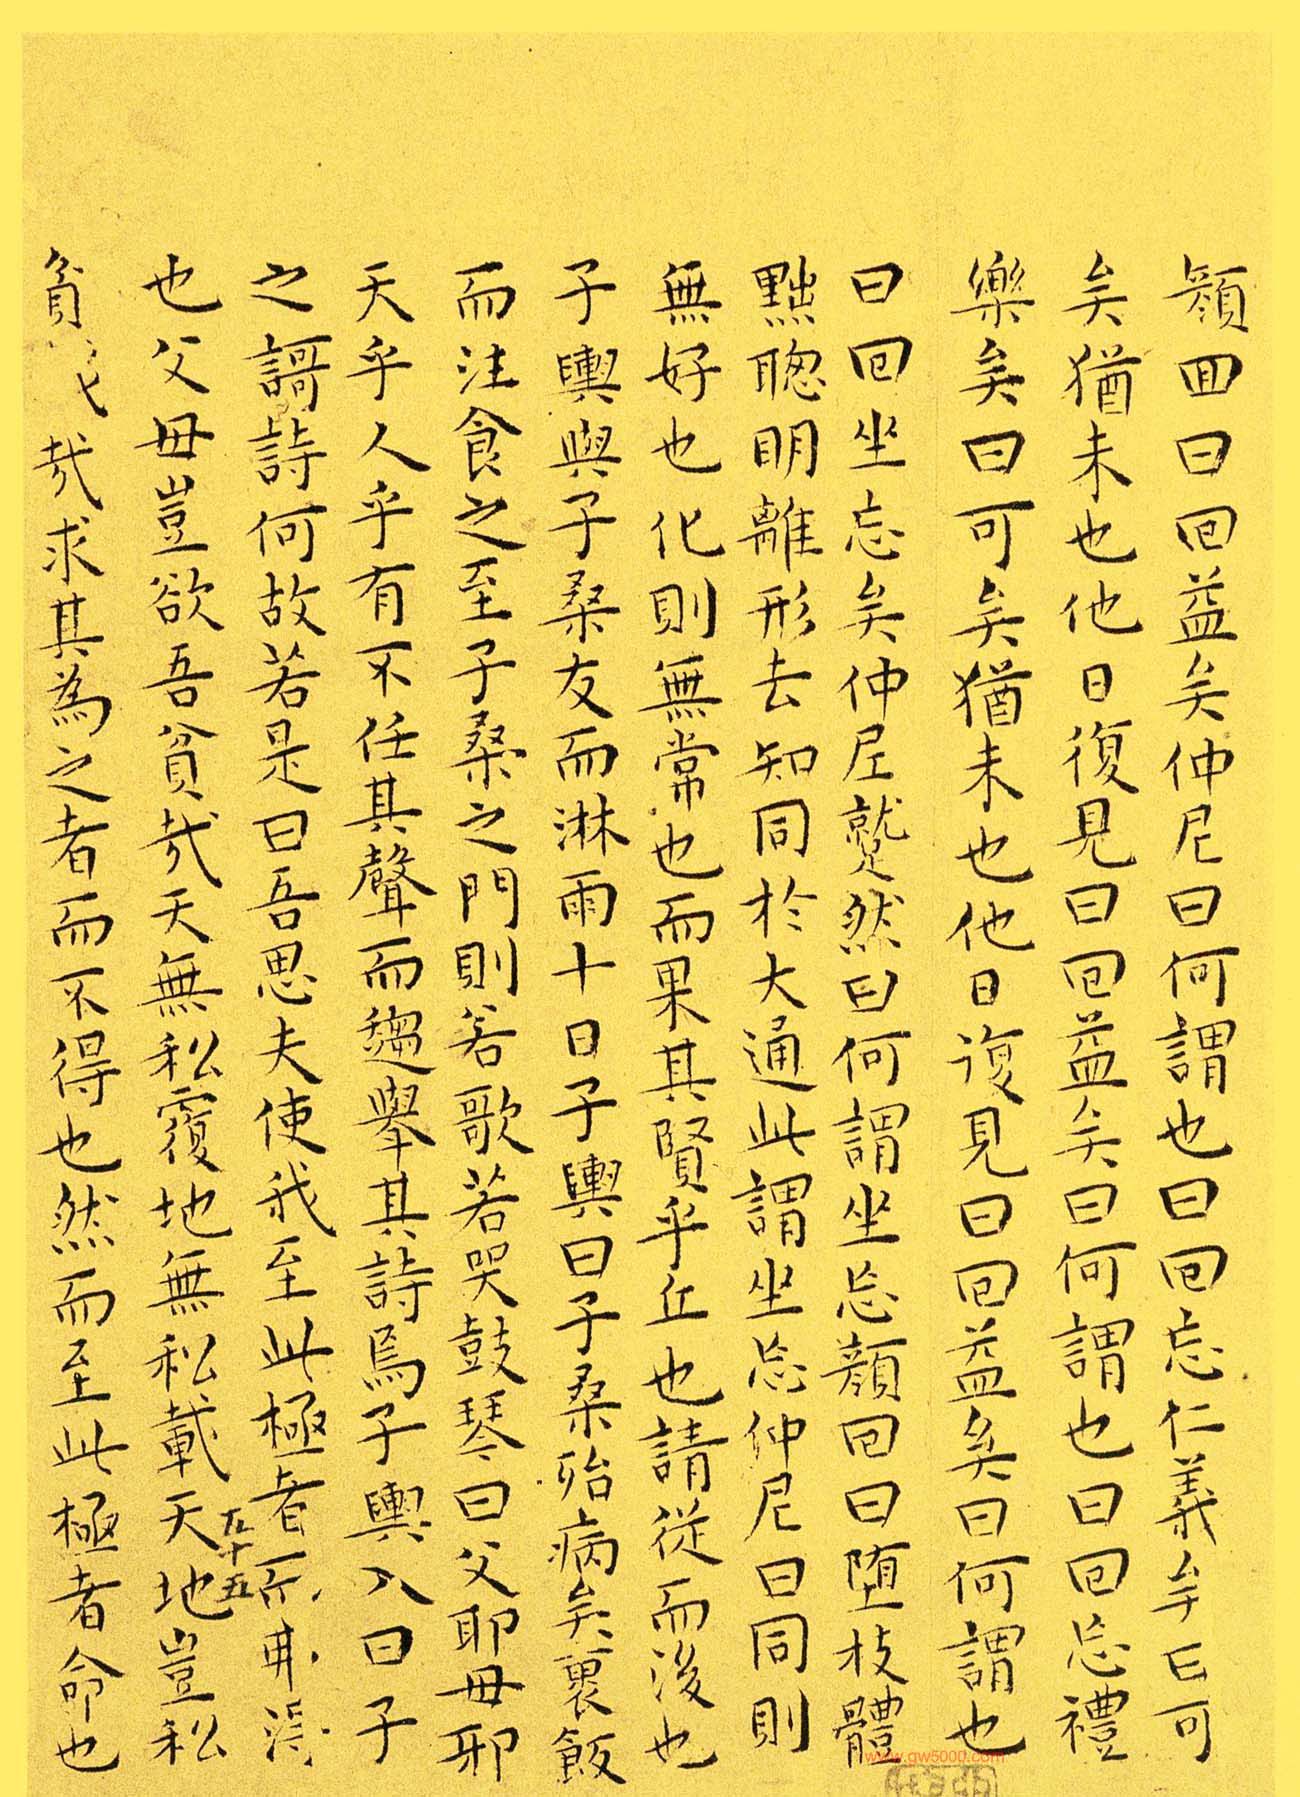 顏回曰回益矣仲尼曰何謂也曰回忘仁義矣曰可
矣猶未也他日復見曰回益矣曰何謂也曰回忘禮
樂矣曰可矣猶未也他日復見曰回益矣曰何謂也
曰回坐忘矣仲尼蹵然曰何謂坐忘顏回曰堕枝體
黜聦明離形去知同於大通此謂坐忘仲尼曰同則
無好也化則無常也而果其賢乎丘也請從而後也
子輿與子桑友而淋雨十日子輿曰子桑殆病矣裹飯
而注食之至子桑之門則若歌若哭鼓琴曰父耶母邪
天乎人乎有不任其聲而趨舉其詩焉子輿入曰子
之謌詩何故若是曰吾思夫使我至此極者而弗得
也父母豈欲吾貧哉天無私覆地無私載天地豈私
貧我哉求其為之者而不得也然而至此極者命也
五十五
www.gw5000.com